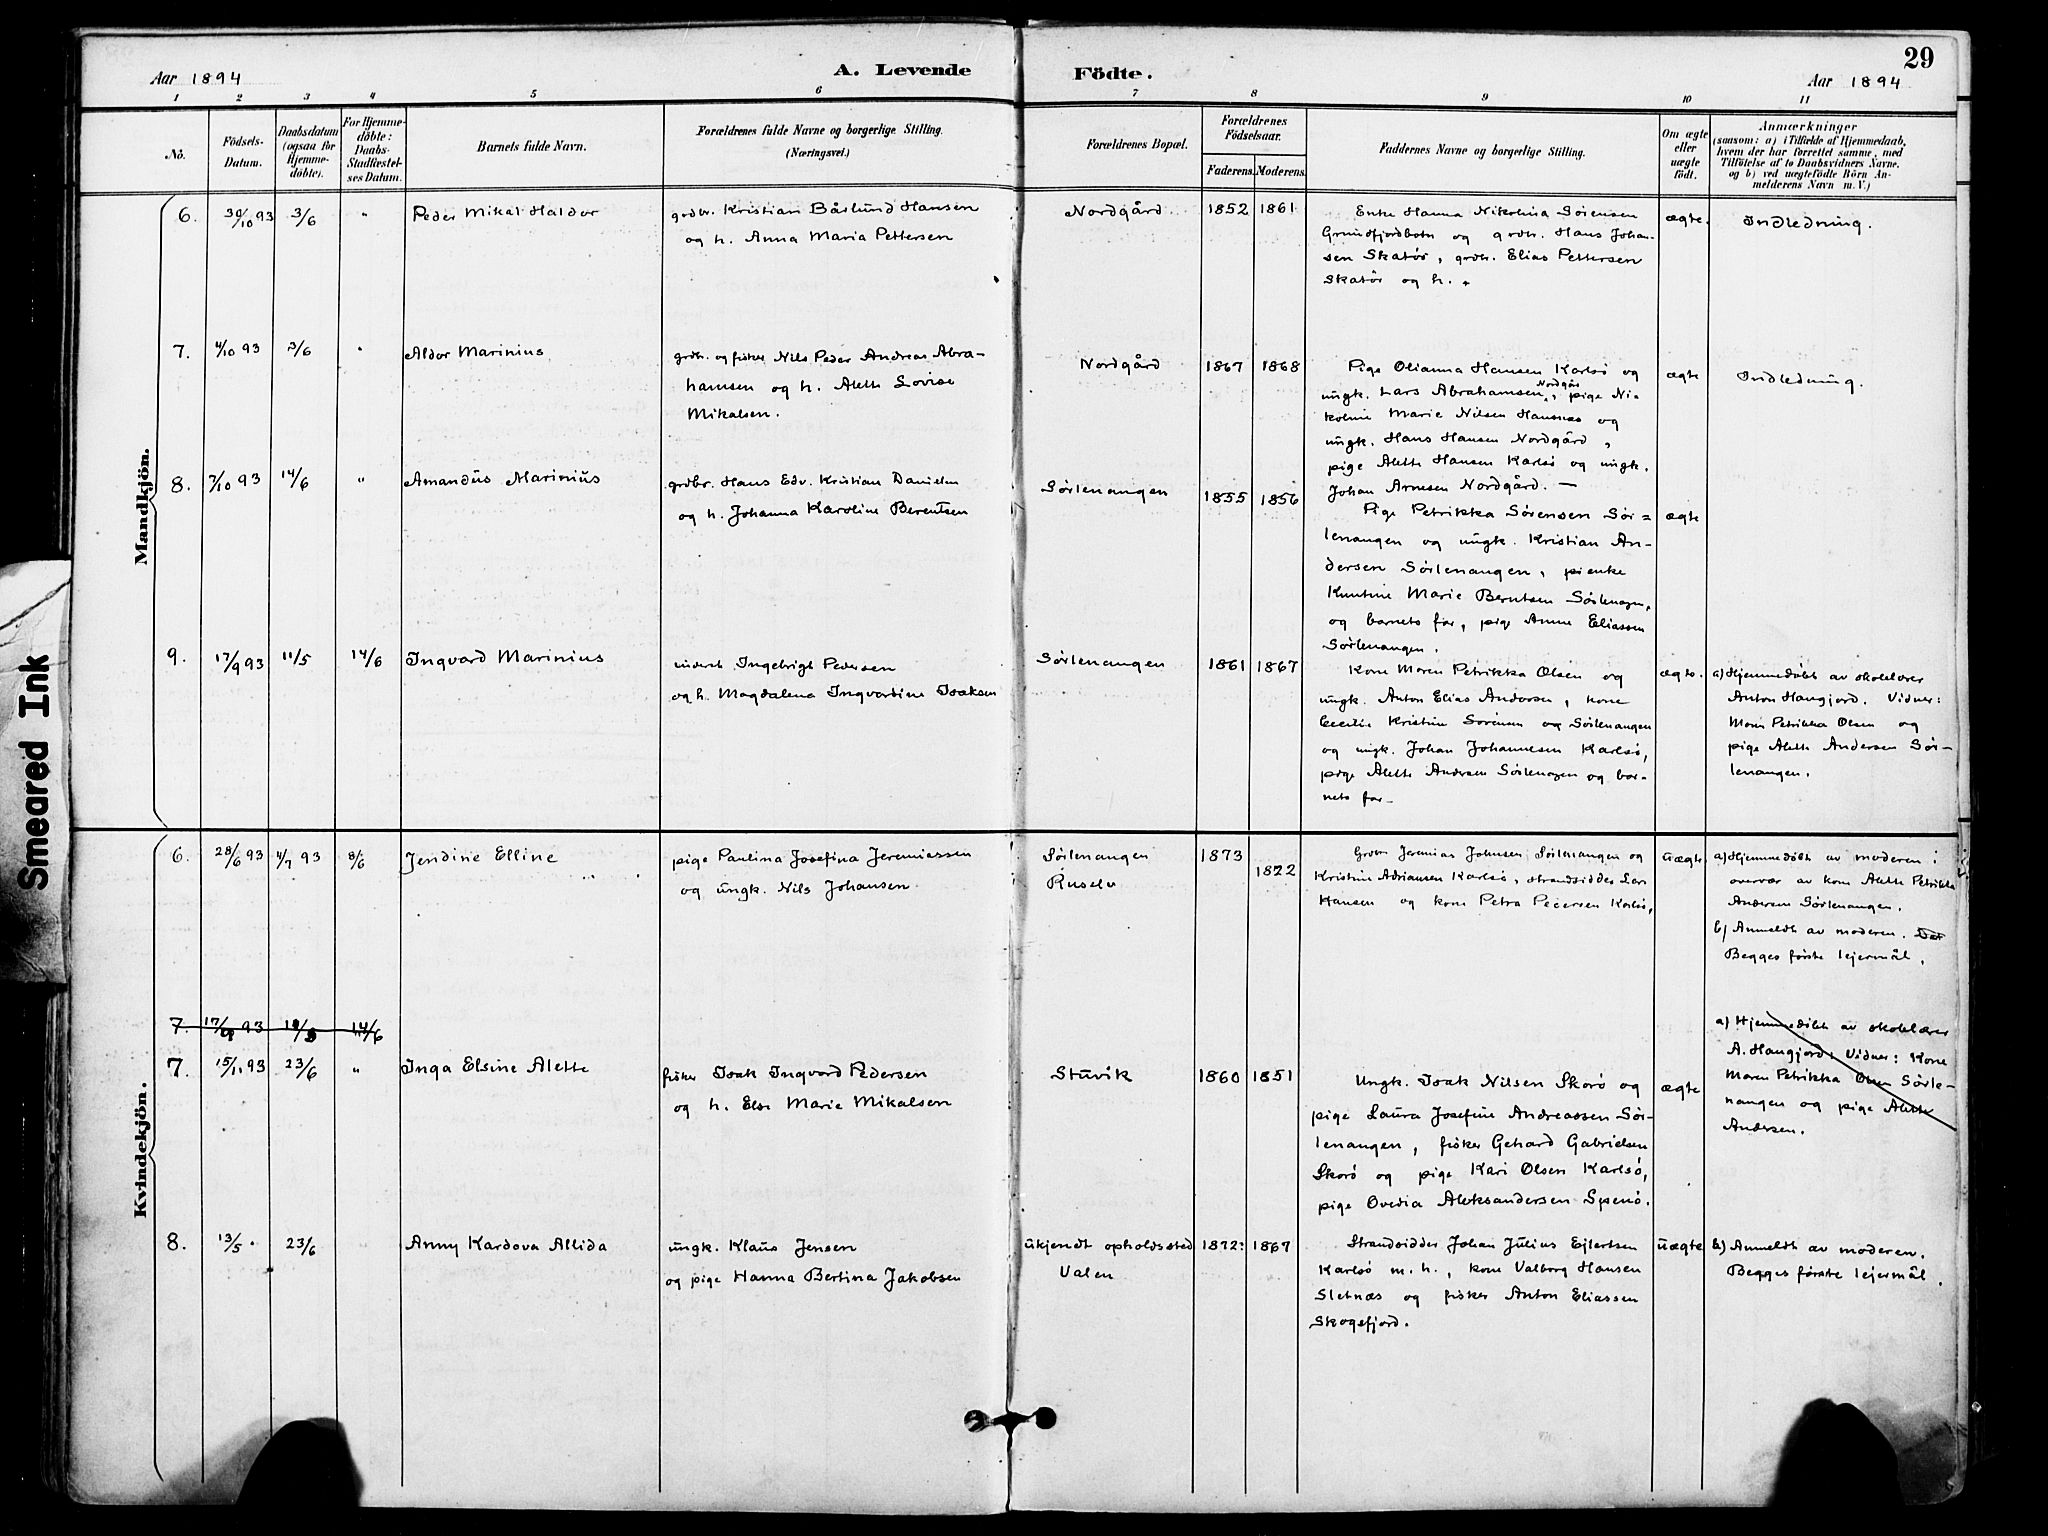 29
Aar 1894
A. Levende
Födte.
Aar 1894
1 2 3 4 5 6 7 8 9 10 11
No.
Födsels-
Datum.
Daabsdatum
(ogsaa for
Hjemme-
döbte).
For Hjemme-
döbte:
Daabs-
Stadfæstel-
ses Datum.
Barnets fulde Navn.
Forældrenes fulde Navne og borgerlige Stilling.
(Næringsvei.)
Forældrenes Bopæl.
Forældrenes
Födselsaar.
Faderens. Moderens.
Faddernes Navne og borgerlige Stilling.
Om ægte
eller
uægte
födt.
Anmærkninger
(saasom: a) i Tilfælde af Hjemmedaab,
hvem der har forrettet samme, med
Tilföielse af to Daabsvidners Navne.
og b) ved uægtefödte Börn An-
melderens Navn m. V.)
Mandkjön.
6. 30/10 93 3/6 " Peder Mikal Haldor
grdbr. Kristian Bårlund Hansen
og h. Anna Maria Pettersen
Nordgård 1852 1861
Enke Hanna Nikolina Sørensen
Grundfjordbotn og grdbr. Hans Johan-
sen Skatör, grdbr. Elias Pettersen
Skatör og h.
ægte. Indledning.
7. 4/10 93 3/6 " Aldor Marinius
grdbr. og fisker Nils Peder Andreas Abra-
hamsen og h. Alette Lovise
Mikalsen.
Nordgård 1867 1868
Pige Olianna Hansen Karlsö og
ungk. Lars Abrahamsen Nordgår, pige Ni-
koline Marie Nilsen Hansnes og
ungk. Hans Hansen Nordgård,
pige Alette Hansen Karlsö og ungk.
Johan Arnesen Nordgård. —
ægte Indledning.
8. 7/10 93 14/6 " Amandus Marinius
grdbr. Hans Edv. Kristian Danielsen
og h. Johanna Karoline Berentsen
Sörlenangen 1855 1856
Pige Petrikka Sörensen Sör=
lenangen og ungk. Kristian An-
dersen Sörlenangen, pi enke
Marie Berntsen Sörlenagen,
og barnets far, pige Anne Eliassen
Sörlenangen.
ægte
9. 17/9 93 11/5 14/6 Ingvard Marinius
inderst Ingebrigt Pedersen
og h. Magdalena Ingvardine Isaksen
Sörlenangen 1861 1867
Kone Maren Petrikka Olsen og
ungk. Anton Elias Andersen, kone
Cecilie Kristine Sörensen og Sörlenangen
og ungk. Johan Johannesen Karlsö,
pige Alette Andersen Sörlenagen og bar-
nets far—
ægte.
a) Hjemmedöbt av skolelærer
Anton Haugfjord. Vidner:
Maren Petrikka Olsen og
pige Alette Andersen Sör-
lenangen.
Kvindekjön.
6. 28/6 93 4/7 93 8/6 Jendine Elline
pige Paulina Josefina Jeremiassen
og ungk. Nils Johansen
Sörlenangen
1873
1872
Jeremias Johnsen Sörlenangen og
Kristine Adriansen Karlsö, strandsidder Lars
Hansen og kone Petra Pedersen Karlsö,
uægte
a) Hjemmedöbt av moderen i
overvær av kone Alette Petrikka
Andersen Sörlenangen.
b) Anmeldt av moderen. Dat
Begges förste lejermål.
7. 17/9 93 14/6
a) Hjemmedöbt av skolelærer
A. Haugfjord. Vidner: Kone
Maren Petrikka Olsen Sörle-
nangen og pige Alette
Andersen.
7. 15/1 93 23/6 " Inga Elsine Alette
fisker Isak Ingvard Pedersen
og h. Else Marie Mikalsen
Stuvik 1860 1851
Ungk. Isak Nilsen Skorö og
pige Laura Josefine Andreassen Sör-
lenangen, fisker Gehard Gabrielsen
Skorö og pige Kari Olsen Karlsö,
pige Ovedia Aleksandersen Spenö.
ægte
8. 13/5 23/6 " Anny Kardova Allida
ungk. Klaus Jensen
og pige Hanna Bertina Jakobsen
ukjendt opholdssted
Valen
1872: 1867
Strandsidder Johan Julius Ejlertsen
Karlsö m. h., kone Valborg Hansen
Sletnæs og fisker Anton Eliassen
Skogsfjord.
uægte
b) Anmeldt av moderen.
Begges förste lejermål.
Smeared Ink